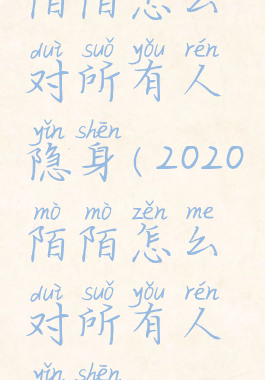 陌陌怎么
duì suǒ yǒu rén
对所有人
yǐn shēn
隐身(2020
mò mò zěn me
陌陌怎么
duì suǒ yǒu rén
对所有人
yǐn shēn